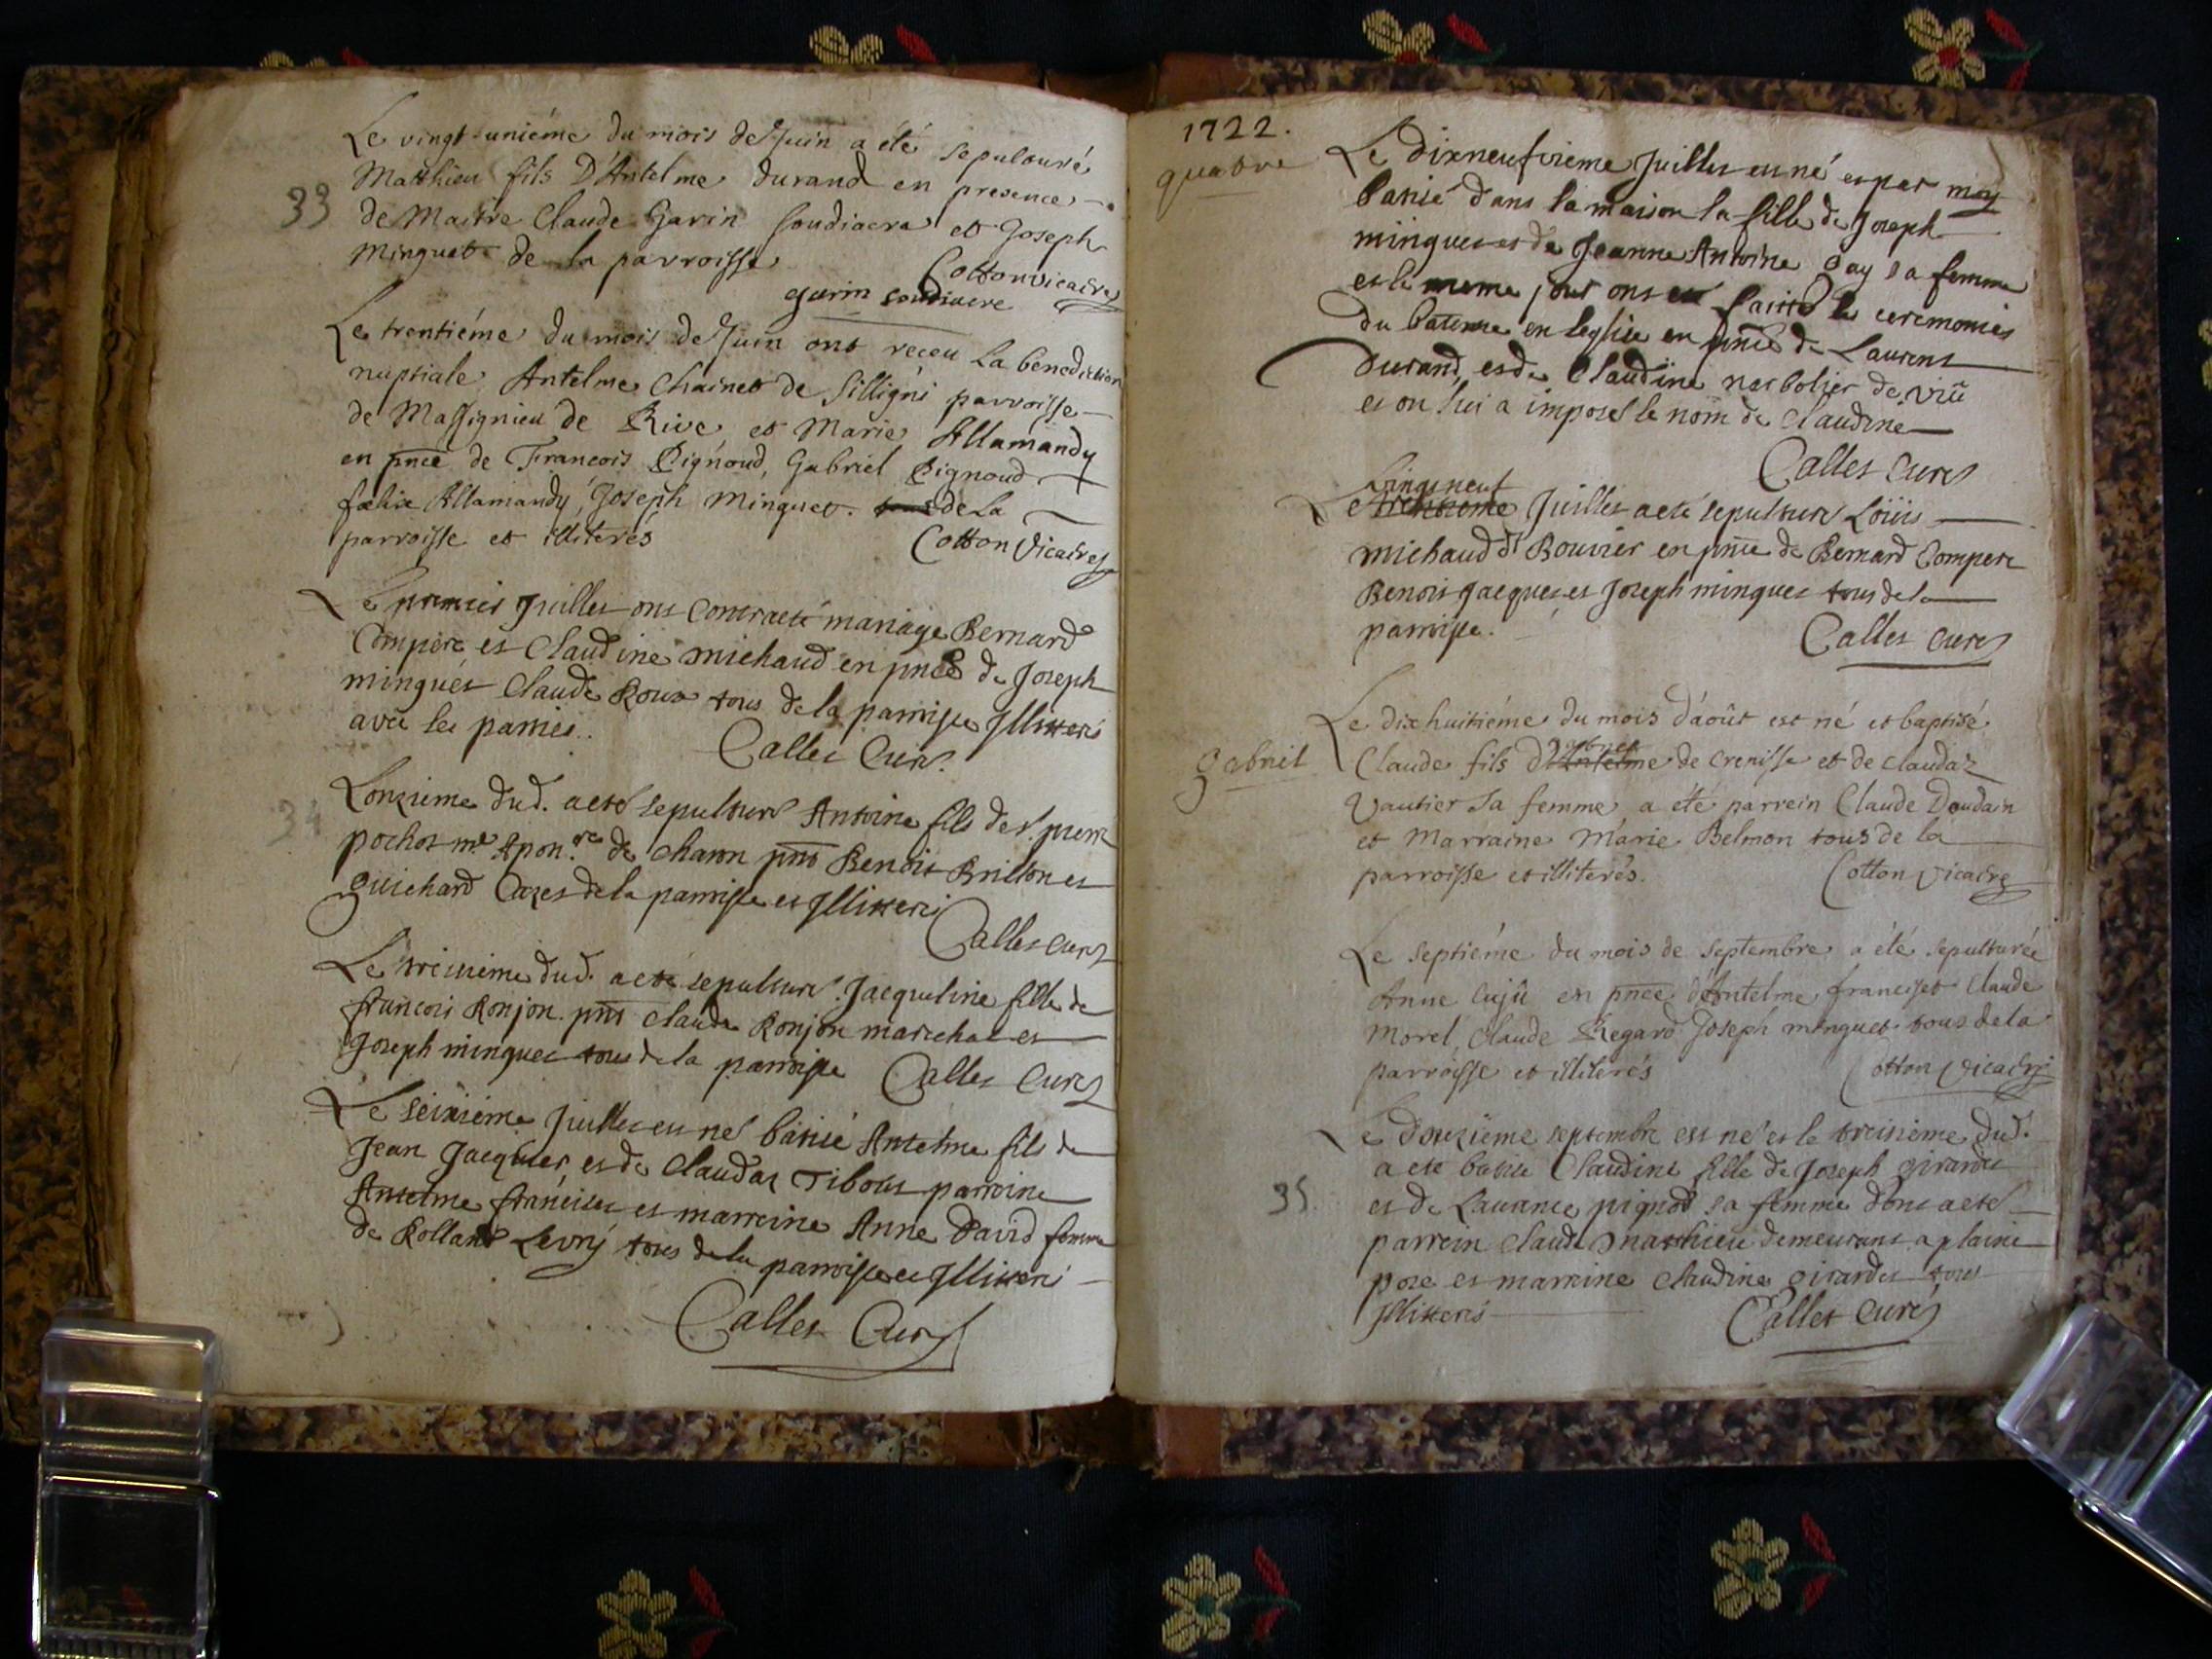 Le vingt-uniéme du mois de Juin a été sepulturé
Matthieu fils D'Antelme durand en presence
33
de Maitre Claude Garin soudiacre et Joseph
Minguet de la parroisse
Cotton vicaire
garin soudiacre
Le trentiéme du mois de Juin ont receu La benediction
nuptiale Antelme Chainet de Silligni parroisse
de Massignieu de Rive et Marie Allamandy
en pnce de Francois Pignoud, Gabriel Pignoud
fœlix Allamandy, Joseph Minguet. tous de La
parroisse et illiterés
Cotton Vicaire
Le premier Juillet ont Contracté mariage Bernard
Compere et Claudine Michaud en pnce de Joseph
minguet Claude Roux tous de la parroisse Illitterés
avec les parties.
Callet Curé
34
Lonzieme dud. a esté sepulturé Antoine fils de sr. pierre
pochet me Apon.re de Charon pnts Benoit Brillon et
guichard Cazet de la parroisse et Illitterés
Callet curé
Le treizieme dud. a esté sepulturé Jacqueline fille de
francois Ronjon. pnts Claude Ronjon marechal et
Joseph minguet tous de la parroisse Callet Curé
Le seizieme Juillet est né batisé Antelme fils de
Jean Jacquier et de Claudaz Tibolet parroine
Antelme franciset et marreine Anne David femme
de Rolland Levrj tous de la parroisse et Illitterés
Callet Curé
1722.
quatre
Le dixneufvieme Juillet est né et par moy
batisé dans la maison la fille de Joseph
minguet et de Jeanne Antoine Gay sa femme
et le meme jour ont esté faittes les ceremonies
du bateme en leglise en pnce de Laurent
Durand et de Claudine narbolier de viû
et on lui a imposé le nom de Claudine
Callet Curé
vingtneuf
Le trentieme Juillet a esté sepulturé Loüis
michaud dt Bouvier en pnce de Bernard Compere
Benoit Jacquet et Joseph minguet tous de la
parroisse.
Callet curé
Le dixhuitiéme du mois d'août est né et baptisé
gabriel
gabriel
Claude fils d'Antelme de crenisse et de claudaz
Vautier sa femme a été parrein Claude Doudain
et Marraine Marie Belmon tous de la
parroisse et illiterés.
Cotton vicaire
Le septiéme du mois de septembre a été sepulturée
Anne Cujû en pnce d'Antelme franciset Claude
Morel, Claude Regard Joseph minguet tous de la
parroisse et illiterés
Cotton vicaire
Le douzieme septembre est né et le treizieme dud.
a esté batisé Claudine fille de Joseph girardet
35.
et de Laurance pignod sa femme dont a esté
parrein Claude Matthieu demeurant a plaine
pose et marreine Claudine girardet tous
Illitterés
Callet Curé